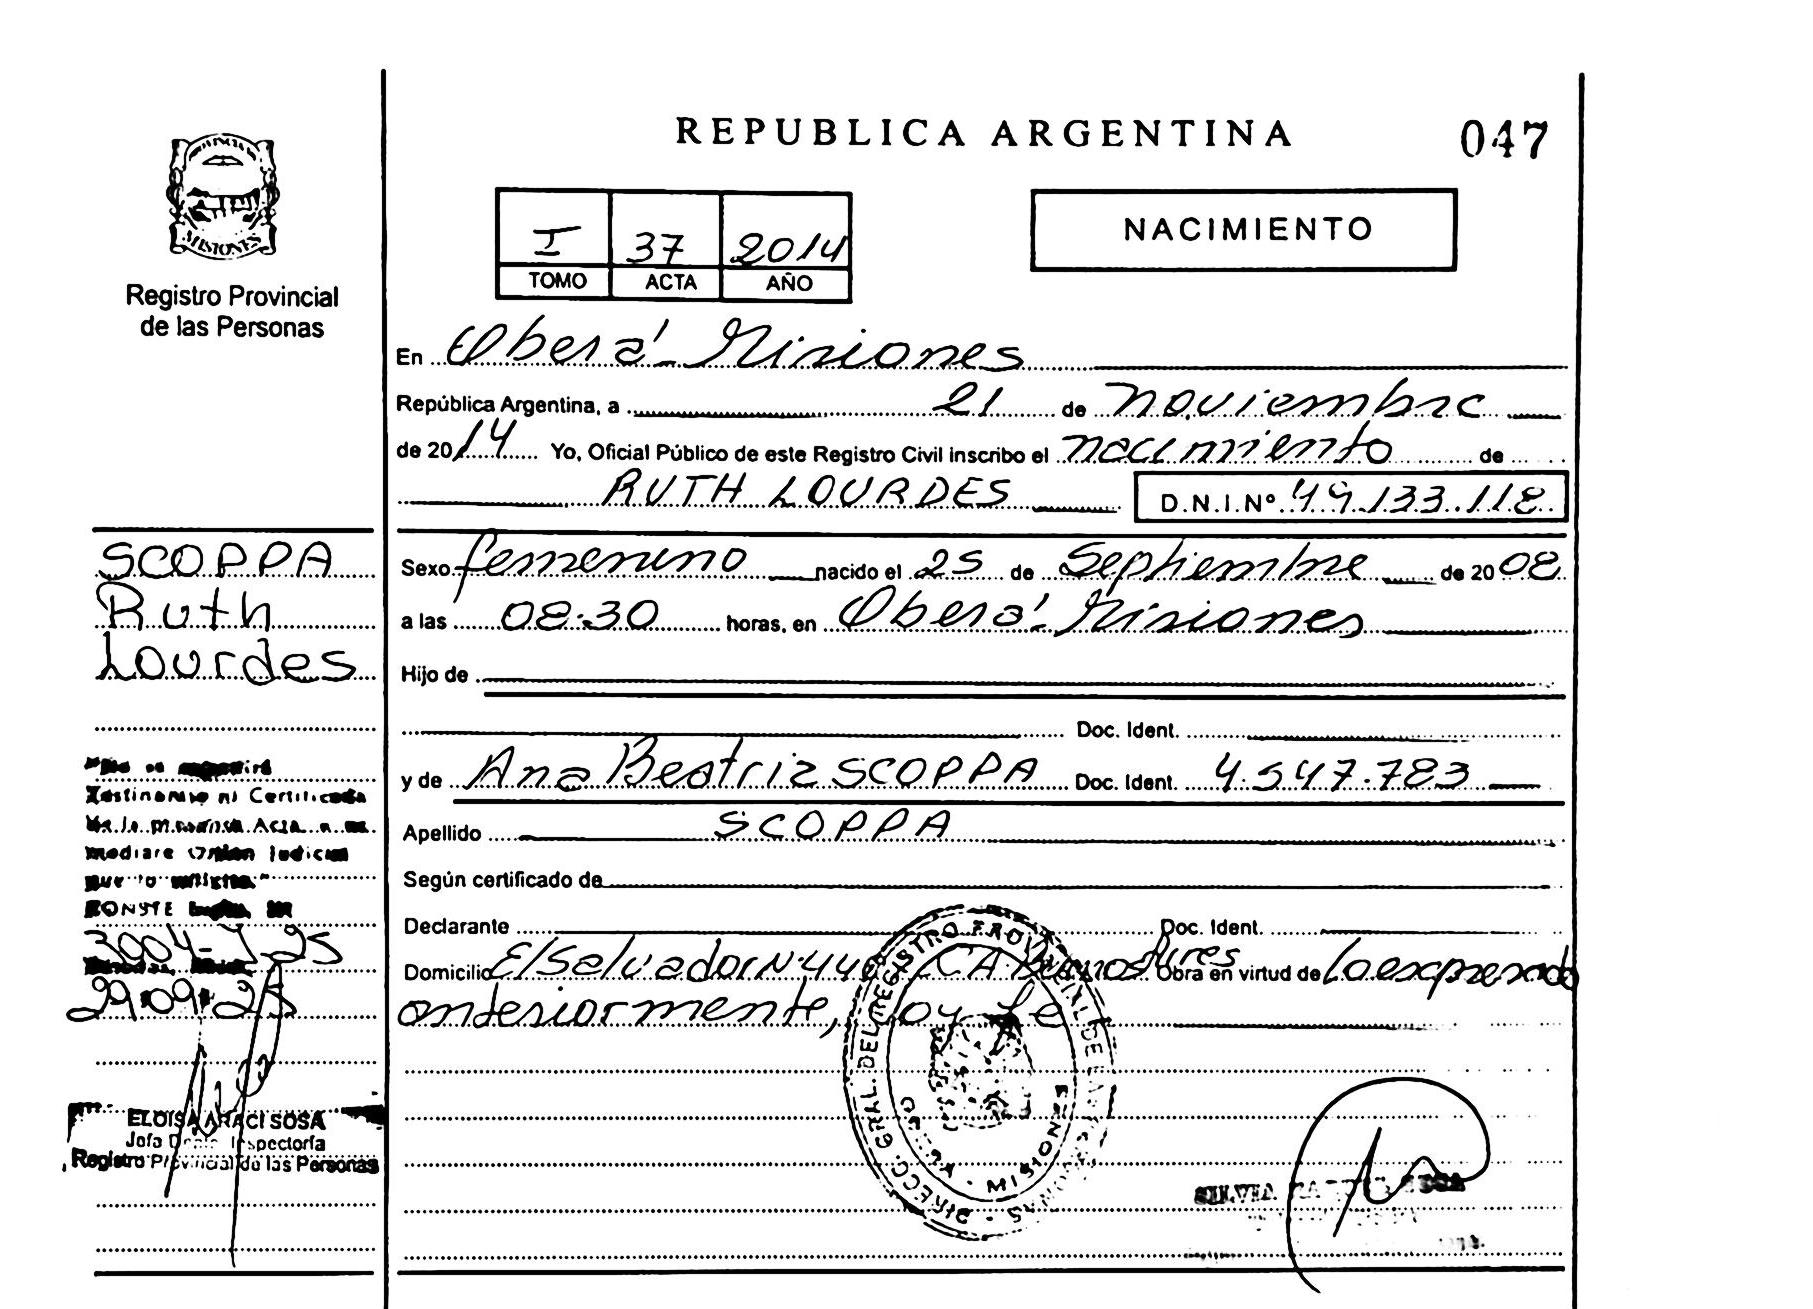 REPUBLICA ARGENTINA
047
I 37 2014
TOMO ACTA AÑO
NACIMIENTO
MISIONES
Registro Provincial
de las Personas
En Oberá - Misiones
República Argentina, a 21 de noviembre
de 2014 Yo, Oficial Público de este Registro Civil inscribo el nacimiento de
RUTH LOURDES D.N.I.Nº 49.133.118
SCOPPA
Ruth
Lourdes
Sexo femenino nacido el 25 de Septiembre de 2008
a las 08:30 horas, en Oberá - Misiones
Hijo de
Doc. Ident.
y de Ana Beatriz SCOPPA Doc. Ident. 4.547.783
Apellido SCOPPA
Según certificado de
Declarante Doc. Ident.
Domicilio El Salvador Nº CA Buenos Aires Obra en virtud de lo expresado
anteriormente, doy fe
Testimonio ni Certificado
de la presente Acta a no
mediare Orden Judicial
que lo
CONSTE
3004-
29.09.25
ELOISA ARACI SOSA
Jefa Dpto. Inspectoría
Registro Provincial de las Personas
DIRECC. GRAL. DEL REGISTRO PROVINCIAL DE LAS PERSONAS
MISIONES
SILVIA